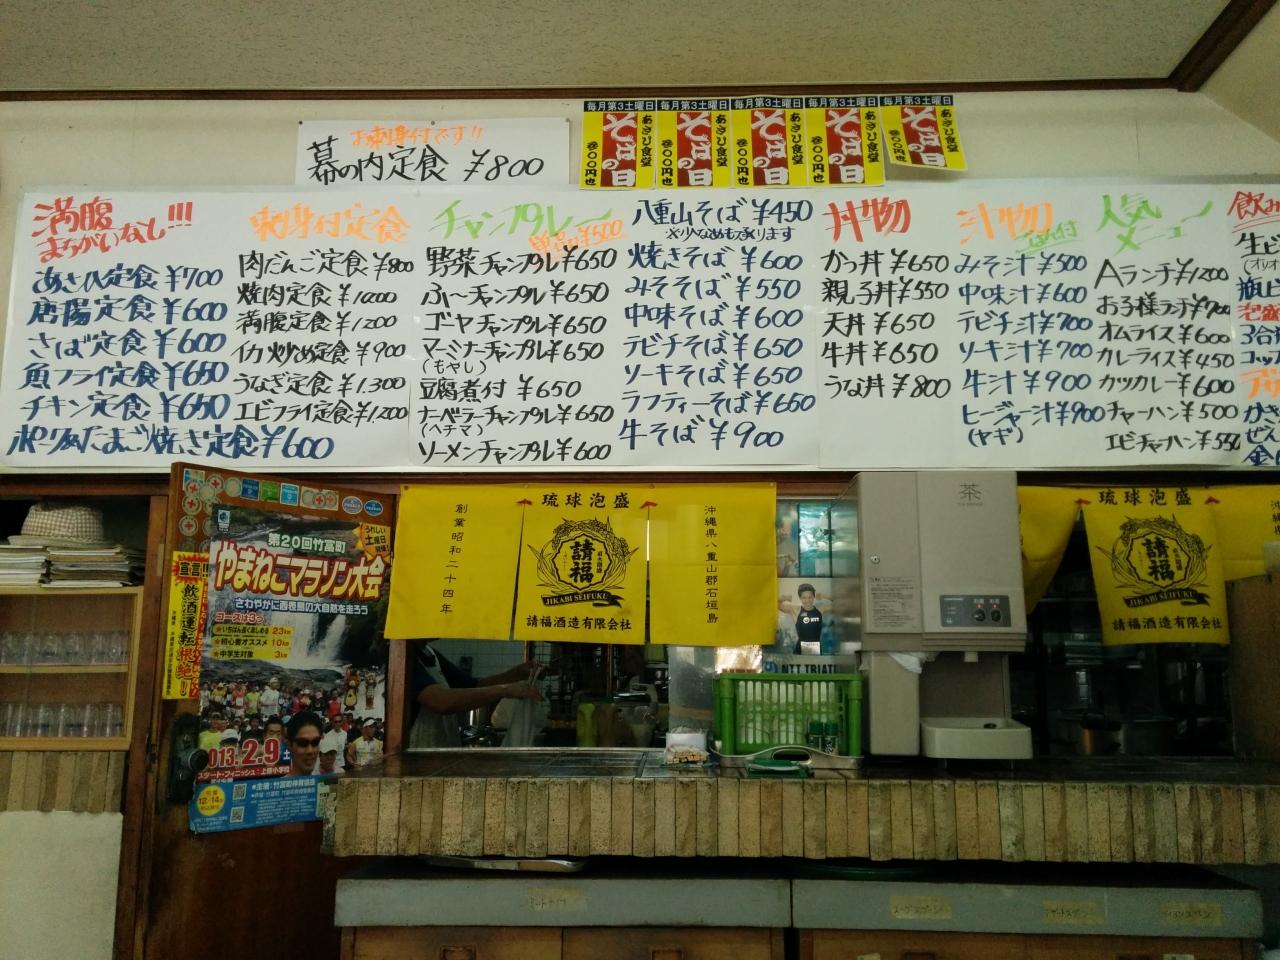 お刺身付です!!
幕の内定食 ¥800
毎月第3土曜日
そばの日
あさひ食堂
毎月第3土曜日
そばの日
あさひ食堂
毎月第3土曜日
そばの日
あさひ食堂
毎月第3土曜日
そばの日
あさひ食堂
毎月第3土曜日
そばの日
あさひ食堂
満腹
まちがいなし!!!
あさひ定食¥700
唐陽定食¥600
さば定食¥600
魚フライ定食¥650
チキン定食¥650
ポーク&たまご焼き定食¥600
刺身付定食
肉だんご定食¥800
焼肉定食¥1000
満腹定食¥1200
イカ炒め定食¥900
うなぎ定食¥1,300
エビフライ定食¥1,200
チャンプルー
単品は¥500
野菜チャンプル¥650
ふ〜チャンプル¥650
ゴーヤチャンプル¥650
マーミナーチャンプル¥650
(もやし)
豆腐煮付 ¥650
ナーベラーチャンプル¥650
(ヘチマ)
ソーメンチャンプル¥600
八重山そば¥450
※少なめも承ります
焼きそば¥600
みそそば¥550
中味そば¥600
テビチそば¥650
ソーキそば¥650
ラフティーそば¥650
牛そば¥900
丼物
かつ丼¥650
親子丼¥550
天丼¥650
牛丼¥650
うな丼¥800
汁物
ごはん付
みそ汁¥500
中味汁¥600
テビチ汁¥700
ソーキ汁¥700
牛汁¥900
ヒージャー汁¥900
(ヤギ)
人気
メニュー
Aランチ¥1200
お子様ランチ¥900
オムライス¥600
カレーライス¥450
カツカレー¥600
チャーハン¥500
エビチャーハン¥550
飲み
生ビ
(オリオ
瓶ビ
泡盛
3合
コップ
かき
ぜん
金
宣言!!
飲酒運転根絶
第20回竹富町
やまねこマラソン大会
さわやかに西表島の大自然を走ろう
うれしい
土曜日
開催!
コースは3つ
★いちばん長く楽しめる 23km
★初心者オススメ 10km
★中学生対象 3km
013.2.9 土
スタート・フィニッシュ:上原小学校
12/14
●主催:竹富町体育協会
創業昭和二十四年
琉球泡盛
請福
JIKABI SEIFUKU
請福酒造有限会社
沖縄県八重山郡石垣島
茶
NTT
NTT TRIATH
琉球泡盛
請福
JIKABI SEIFUKU
請福酒造有限会社
沖縄